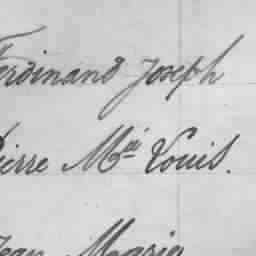 Ferdinand Joseph
Pierre Mie Louis.
Jean Marie